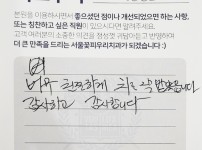 본원을 이용하시면서 좋으셨던 점이나 개선되었으면 하는 사항,
또는 칭찬하고 싶은 직원이 있으시다면 알려주세요.
고객 여러분의 소중한 의견을 정성껏 귀담아듣고 반영하여
더 큰 만족을 드리는 서울꽃피우리치과가 되겠습니다 :)
너무 친절하게 치료
감사하고 감사합니다